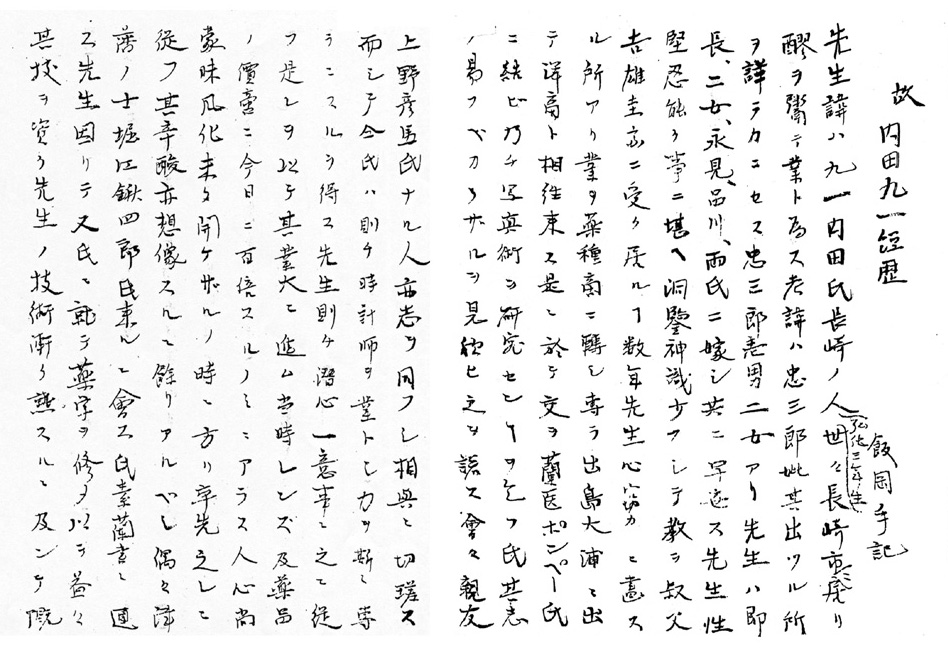 故 内田九一短歴
飯岡手記
先生諱ハ九一内田氏長崎ノ人世々長崎市ニ在リ
弘化三年生
醪ヲ鬻テ業ト為ス考諱ハ忠三郎妣其出ツル所
ヲ詳ラカニセス忠三郎壱男二女アリ先生ハ即
長、二女、永見、品川、両氏ニ嫁シ共ニ早逝ス先生性
堅忍能ク事ニ堪ヘ洞鑒神識少フシテ教ヲ叔父
吉雄圭斎ニ受ク居ルヿ数年先生心窃カニ畫ス
ル所アリ業ヲ薬種商ニ轉シ専ラ出島大浦ニ出
テ洋商ト相往来ス是ニ於テ交ヲ蘭医ポンペー氏
ニ結ビ乃チ写真術ヲ研究センヿヲ乞フ氏其志
ノ易フベカラザルヲ見欣ヒ之ヲ諾ス會々親友
上野彦馬氏ナル人亦志ヲ同フシ相與ニ切瑳ス
而シテ今氏ハ則チ時計師ヲ業トシ力ヲ斯ニ専
ラニスルヲ得ス先生則ケ潜心一意事ニ之ニ従
フ是レヲ以テ其業大ニ進ム当時レンズ及薬品
ノ價啻ニ今日ニ百倍スルノミニアラス人心尚
蒙昧風化未タ開ケザルノ時ニ方リ率先之レニ
従フ其辛酸亦想像スルニ餘リアルベシ偶々津
藩ノ士堀江鍬四郎氏来ルニ會ス氏素蘭書ニ通
ス先生因リテ又氏ニ就テ薬学ヲ修メ以テ益々
其技ヲ資ク先生ノ技術漸ク熟スルニ及ンテ慨